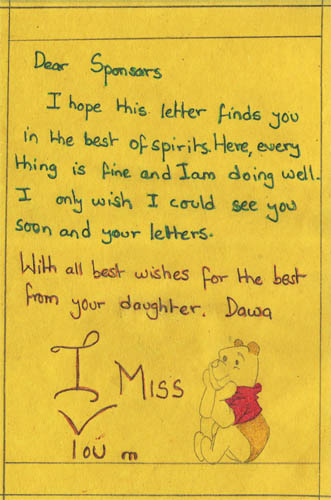 Dear Sponsars
I hope this letter finds you
in the best of spirits. Here, every
thing is fine and I am doing well.
I only wish I could see you
soon and your letters.
With all best wishes for the best
from your daughter. Dawa
I MISS
You m